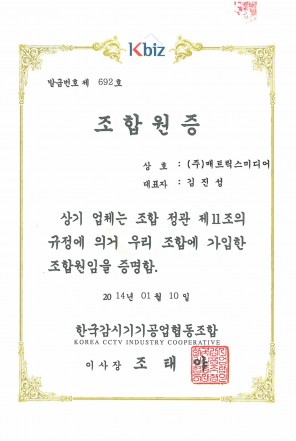 Kbiz
발급번호 제 692호
조 합 원 증
상 호 : (주)매트릭스미디어
대표자 : 김 진 성
상기 업체는 조합 정관 제11조의
규정에 의거 우리 조합에 가입한
조합원임을 증명함.
2014년 01월 10일
한국감시기기공업협동조합
KOREA CCTV INDUSTRY COOPERATIVE
이사장 조 태 야